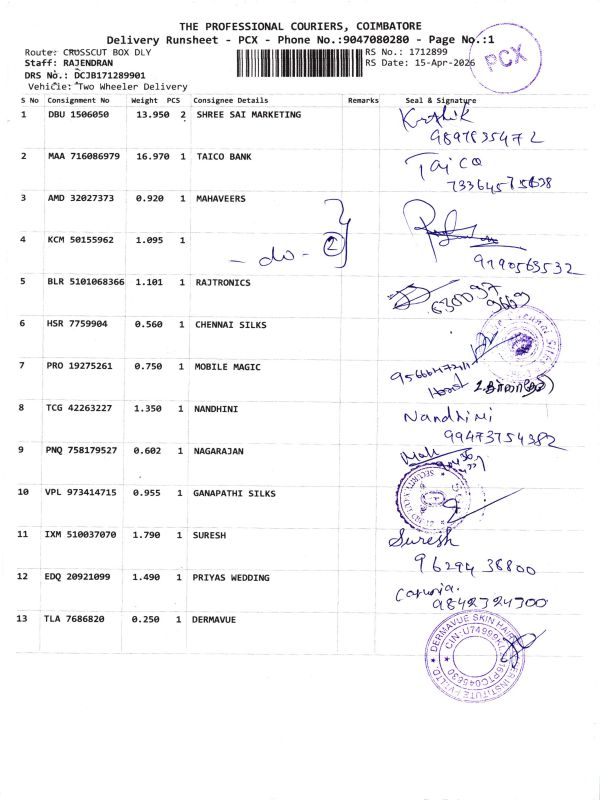 THE PROFESSIONAL COURIERS, COIMBATORE
Delivery Runsheet - PCX - Phone No.:9047080280 - Page No.:1
PCX
Route: CROSSCUT BOX DLY
RS No.: 1712899
Staff: RAJENDRAN
RS Date: 15-Apr-2026
DRS No.: DCJB171289901
Vehicle: Two Wheeler Delivery
S No Consignment No Weight PCS Consignee Details Remarks Seal & Signature
1 DBU 1506050 13.950 2 SHREE SAI MARKETING Karthik
2 MAA 716086979 16.970 1 TAICO BANK Taico
3 AMD 32027373 0.920 1 MAHAVEERS
4 KCM 50155962 1.095 1
- do - 2
9190563532
5 BLR 5101068366 1.101 1 RAJTRONICS 630097
9669
6 HSR 7759904 0.560 1 CHENNAI SILKS
7 PRO 19275261 0.750 1 MOBILE MAGIC
8 TCG 42263227 1.350 1 NANDHINI Nandhini
99473754382
9 PNQ 758179527 0.602 1 NAGARAJAN
10 VPL 973414715 0.955 1 GANAPATHI SILKS
11 IXM 510037070 1.790 1 SURESH Suresh
9629436800
12 EDQ 20921099 1.490 1 PRIYAS WEDDING
9842324300
13 TLA 7686820 0.250 1 DERMAVUE
DERMAVUE SKIN HAIR